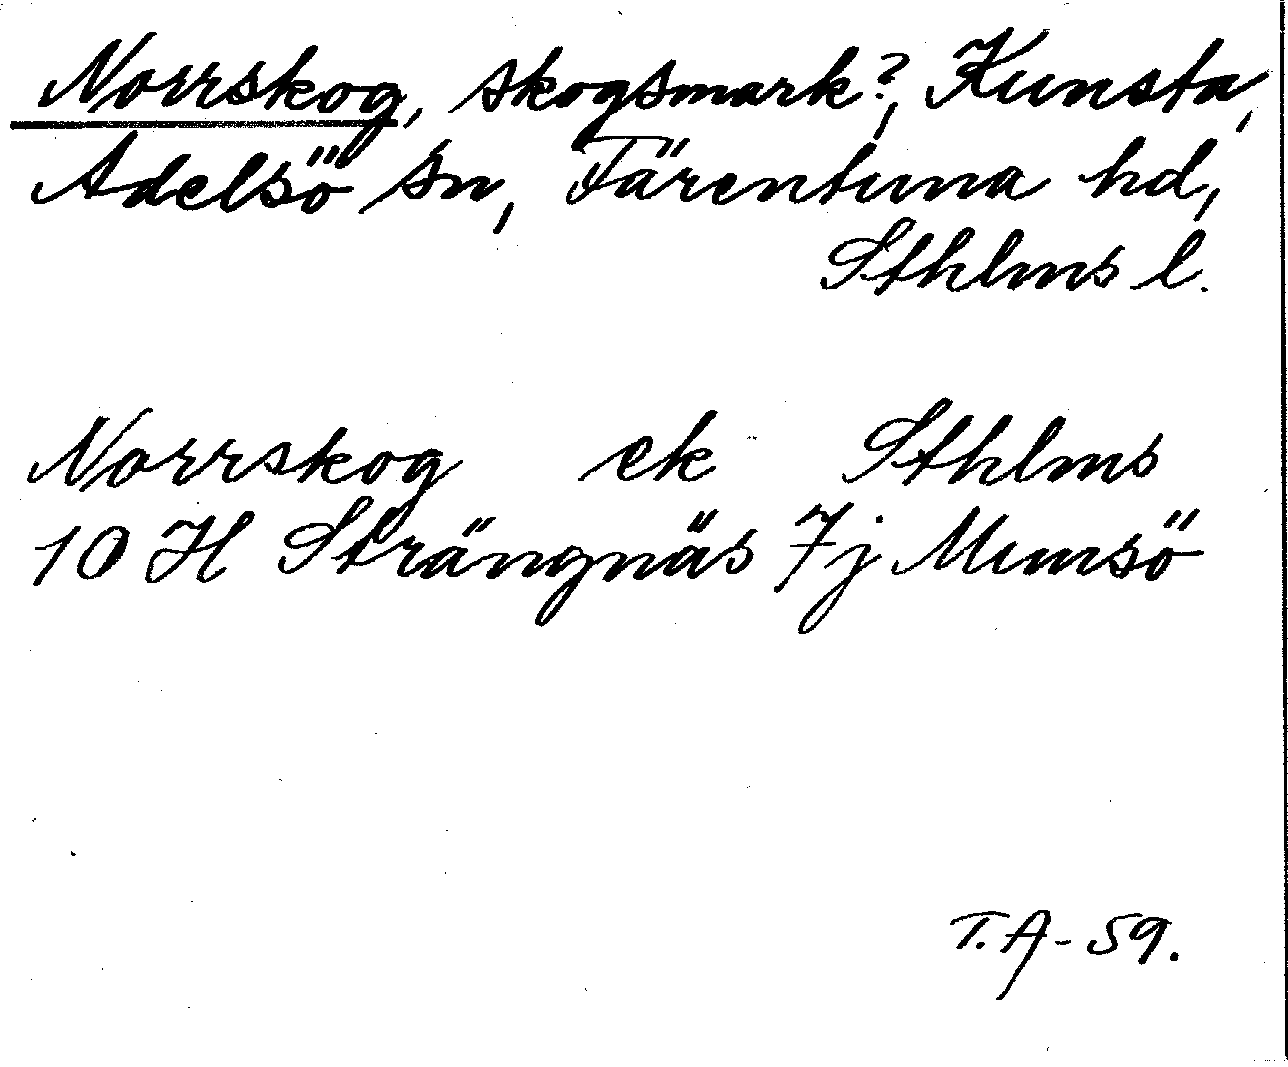 Norrskog, skogsmark?, Kunsta,
Adelsö sn, Färentuna hd,
Sthlms l.
Norrskog ek Sthlms
10 H Strängnäs 7j Munsö
T. A - 59.